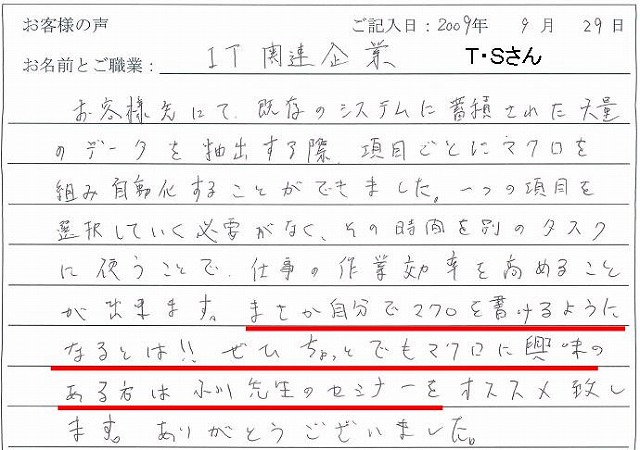 お客様の声 ご記入日：2009年 9月 29日
お名前とご職業： IT関連企業 T・Sさん
お客様先にて、既存のシステムに蓄積された大量
のデータを抽出する際、項目ごとにマクロを
組み自動化することができました。一つの項目を
選択していく必要がなく、その時間を別のタスク
に使うことで、仕事の作業効率を高めること
が出来ます。まさか自分でマクロを書けるように
なるとは!! ぜひちょっとでもマクロに興味の
ある方は小川先生のセミナーをオススメ致し
ます。ありがとうございました。